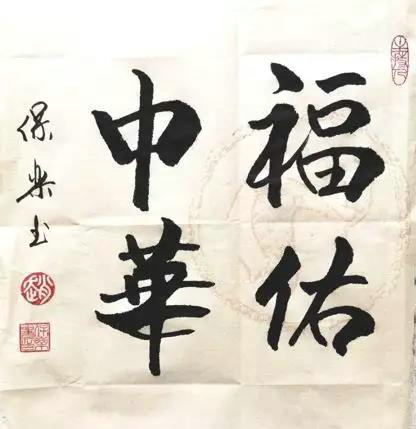 福佑
中華
保樂书